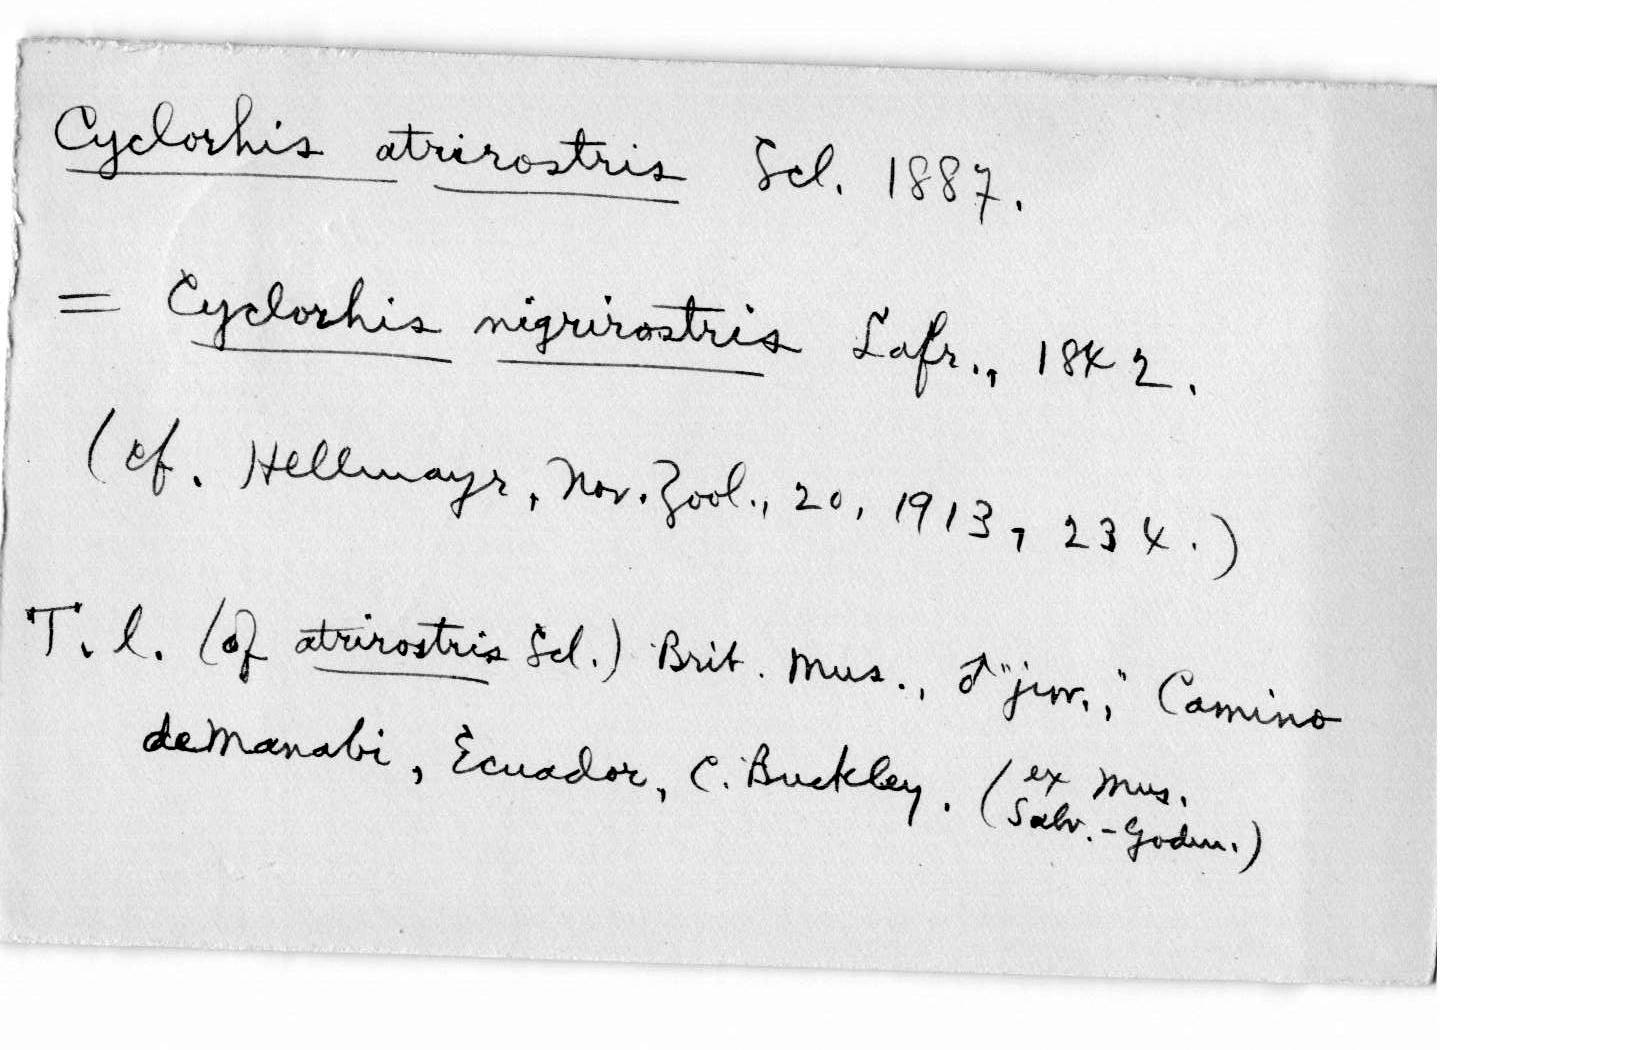 Cyclorhis atrirostris Scl. 1887.
= Cyclorhis nigrirostris Lafr., 1842.
(cf. Hellmayr, Nov. Zool., 20, 1913, 234.)
T. l. (of atrirostris Scl.) Brit. Mus., ♂ "juv.," Camino
de Manabi, Ecuador, C. Buckley. (ex Mus.
Salv.-Godm.)